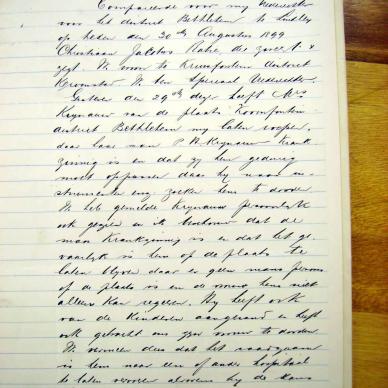 Compareerde voor mij Vrederechter
voor het district Bethlehem te Lindley
op heden den 30th Augustus 1899
Christiaan Jacobus Rabie die zweert &
zegt. Ik woon te district
Kroonstad Ik ben Speciaal Vrederechter
Gister den 29th dezer heeft Mrs
Krynauw van de plaats Doornfontein
district Bethlehem my laten roepen,
daar haar man P A Krynauw Krank
zinnig is en dat zy hem gedurig
moet oppassen daar hy naar in-
strumenten enz zoeken hem te dooden
Ik heb gemelde Krynauw persoonlyk
ook gezien en ik dat de
man Krankzinnig is en dat het ge-
vaarlyk is hem op de plaats te
laten blyven daar er geen mans persoon
op de plaats is en de vrouw hem niet
alleen kan regeren. Hy heeft ook
van de Kinderen aangerand en heeft
ook gebracht om zyn vrouw te dooden
Ik vermeen dus dat het raadzaam
is hem naar een of ander hospitaal
te laten alvorens hy de kans